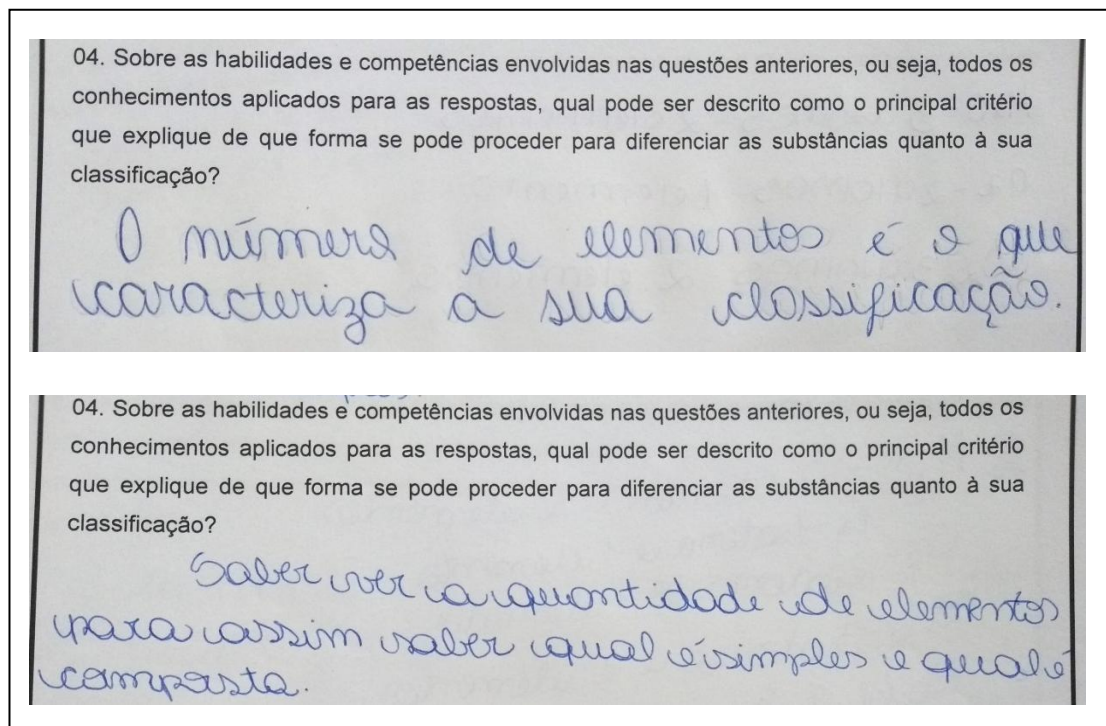 04. Sobre as habilidades e competências envolvidas nas questões anteriores, ou seja, todos os
conhecimentos aplicados para as respostas, qual pode ser descrito como o principal critério
que explique de que forma se pode proceder para diferenciar as substâncias quanto à sua
classificação?
O número de elementos é o que
caracteriza a sua classificação.
04. Sobre as habilidades e competências envolvidas nas questões anteriores, ou seja, todos os
conhecimentos aplicados para as respostas, qual pode ser descrito como o principal critério
que explique de que forma se pode proceder para diferenciar as substâncias quanto à sua
classificação?
Saber ver a quantidade de elementos
para assim saber qual é simples e qual é
composta.